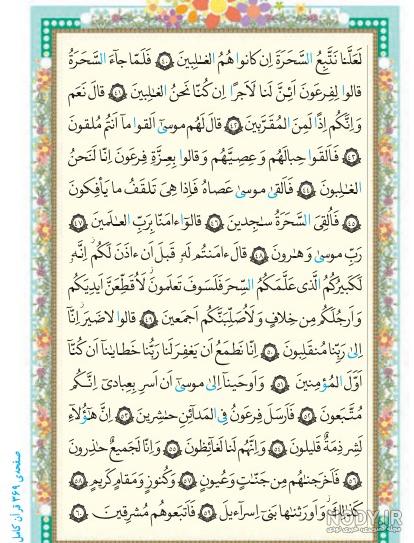 لَعَلَّنا نَتَّبِعُ السَّحَرَةَ اِن كانوا هُمُ الغالِبينَ ﴿٤٠﴾ فَلَمّا جآءَ السَّحَرَةُ
قالوا لِفِرعَونَ اَئِنَّ لَنا لَاَجرًا اِن كُنّا نَحنُ الغالِبينَ ﴿٤١﴾ قالَ نَعَم
وَاِنَّكُم اِذًا لَمِنَ المُقَرَّبينَ ﴿٤٢﴾ قالَ لَهُم موسىٰٓ اَلقوا مآ اَنتُم مُلقونَ
﴿٤٣﴾ فَاَلقَوا حِبالَهُم وَعِصِيَّهُم وَقالوا بِعِزَّةِ فِرعَونَ اِنّا لَنَحنُ
الغالِبونَ ﴿٤٤﴾ فَاَلقىٰ موسىٰ عَصاهُ فَاِذا هِيَ تَلقَفُ ما يَأفِكونَ
﴿٤٥﴾ فَاُلقِيَ السَّحَرَةُ ساجِدينَ ﴿٤٦﴾ قالوٓا ءامَنّا بِرَبِّ العالَمينَ ﴿٤٧﴾
رَبِّ موسىٰ وَهارونَ ﴿٤٨﴾ قالَ ءامَنتُم لَهو قَبلَ اَن ءاذَنَ لَكُم اِنَّهو
لَكَبيرُكُمُ الَّذي عَلَّمَكُمُ السِّحرَ فَلَسَوفَ تَعلَمونَ لَاُقَطِّعَنَّ اَيدِيَكُم
وَاَرجُلَكُم مِن خِلافٍ وَلَاُصَلِّبَنَّكُم اَجمَعينَ ﴿٤٩﴾ قالوا لا ضَيرَ اِنّآ
اِلىٰ رَبِّنا مُنقَلِبونَ ﴿٥٠﴾ اِنّا نَطمَعُ اَن يَغفِرَ لَنا رَبُّنا خَطايانآ اَن كُنّآ
اَوَّلَ المُؤمِنينَ ﴿٥١﴾ وَاَوحَينآ اِلىٰ موسىٰٓ اَن اَسرِ بِعِبادي اِنَّكُم
مُتَّبَعونَ ﴿٥٢﴾ فَاَرسَلَ فِرعَونُ فِي المَدآئِنِ حاشِرينَ ﴿٥٣﴾ اِنَّ هٰٓؤُلآءِ
لَشِرذِمَةٌ قَليلونَ ﴿٥٤﴾ وَاِنَّهُم لَنا لَغآئِظونَ ﴿٥٥﴾ وَاِنّا لَجَميعٌ حاذِرونَ
﴿٥٦﴾ فَاَخرَجناهُم مِن جَنّاتٍ وَعُيونٍ ﴿٥٧﴾ وَكُنوزٍ وَمَقامٍ كَريمٍ ﴿٥٨﴾
كَذٰلِكَ وَاَورَثناها بَنيٓ اِسرآءيلَ ﴿٥٩﴾ فَاَتبَعوهُم مُشرِقينَ ﴿٦٠﴾
صفحه‌ی ۳۶۹ قرآن کامل
NODY.IR